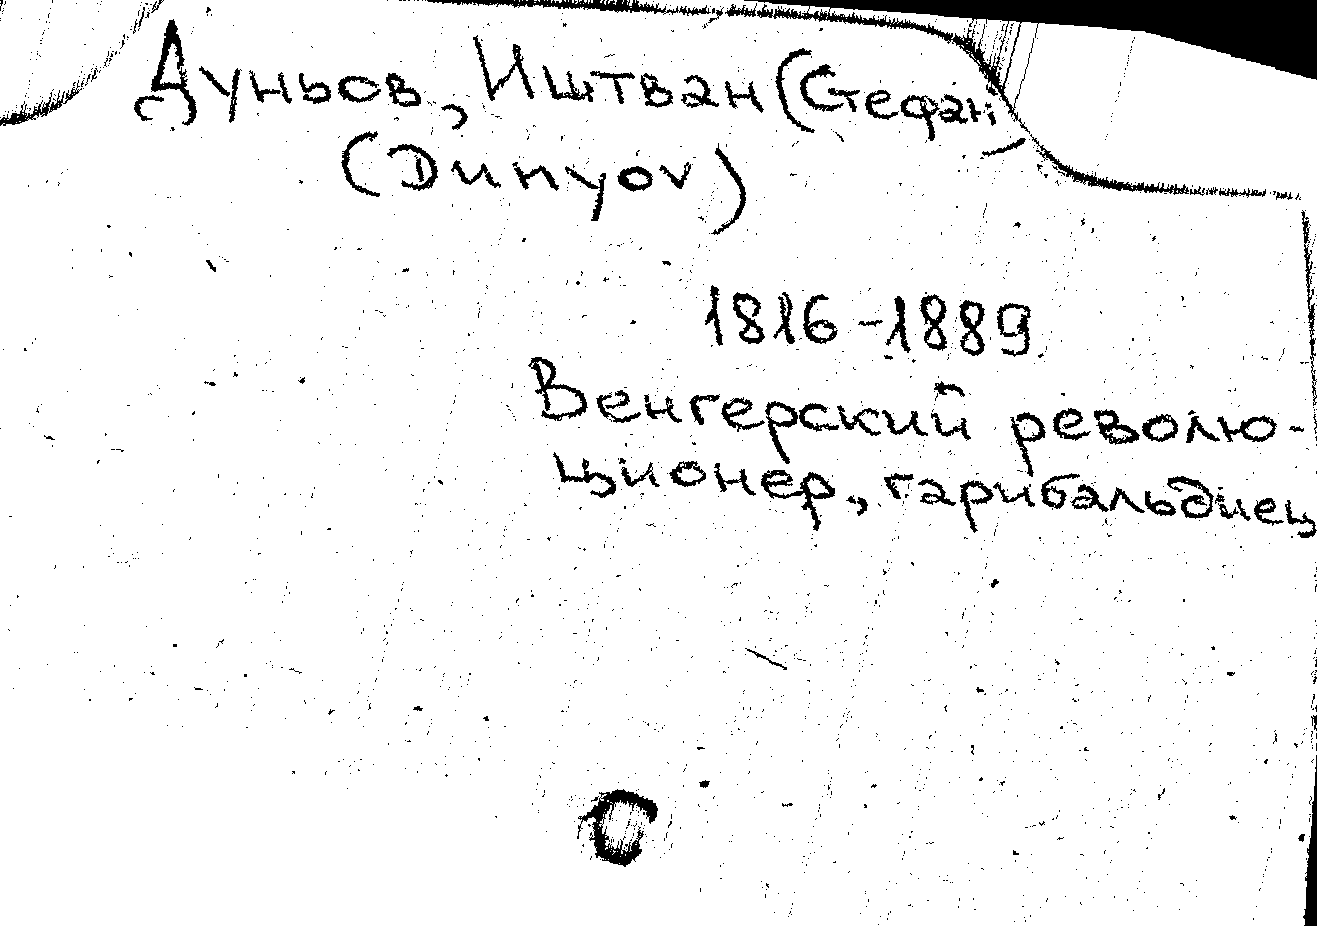 Дуньов, Иштван (Стефан)
(Dunyov)
1816-1889
Венгерский револю-
ционер, гарибальдиец